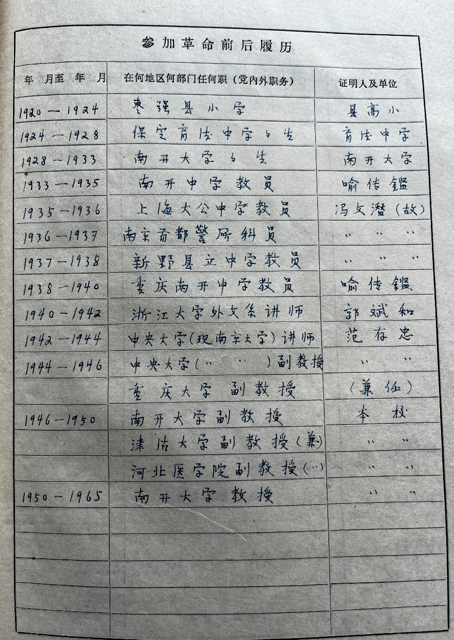 参加革命前后履历
年 月至 年 月 在何地区何部门任何职(党内外职务) 证明人及单位
1920—1924 枣强县小学 县高小
1924—1928 保定育德中学学生 育德中学
1928—1933 南开大学学生 南开大学
1933—1935 南开中学教员 喻传鑑
1935—1936 上海大公中学教员 冯文潜(故)
1936—1937 南京首都警厅科员 〃 〃 〃
1937—1938 新野县立中学教员 〃 〃 〃
1938—1940 重庆南开中学教员 喻传鑑
1940—1942 浙江大学外文系讲师 郭斌和
1942—1944 中央大学(现南京大学)讲师 范存忠
1944—1946 中央大学(〃 〃)副教授 〃 〃
重庆大学 副教授 (兼任)
1946—1950 南开大学副教授 本校
津沽大学副教授(兼) 〃 〃
河北医学院副教授(〃) 〃 〃
1950—1965 南开大学 教授 〃 〃